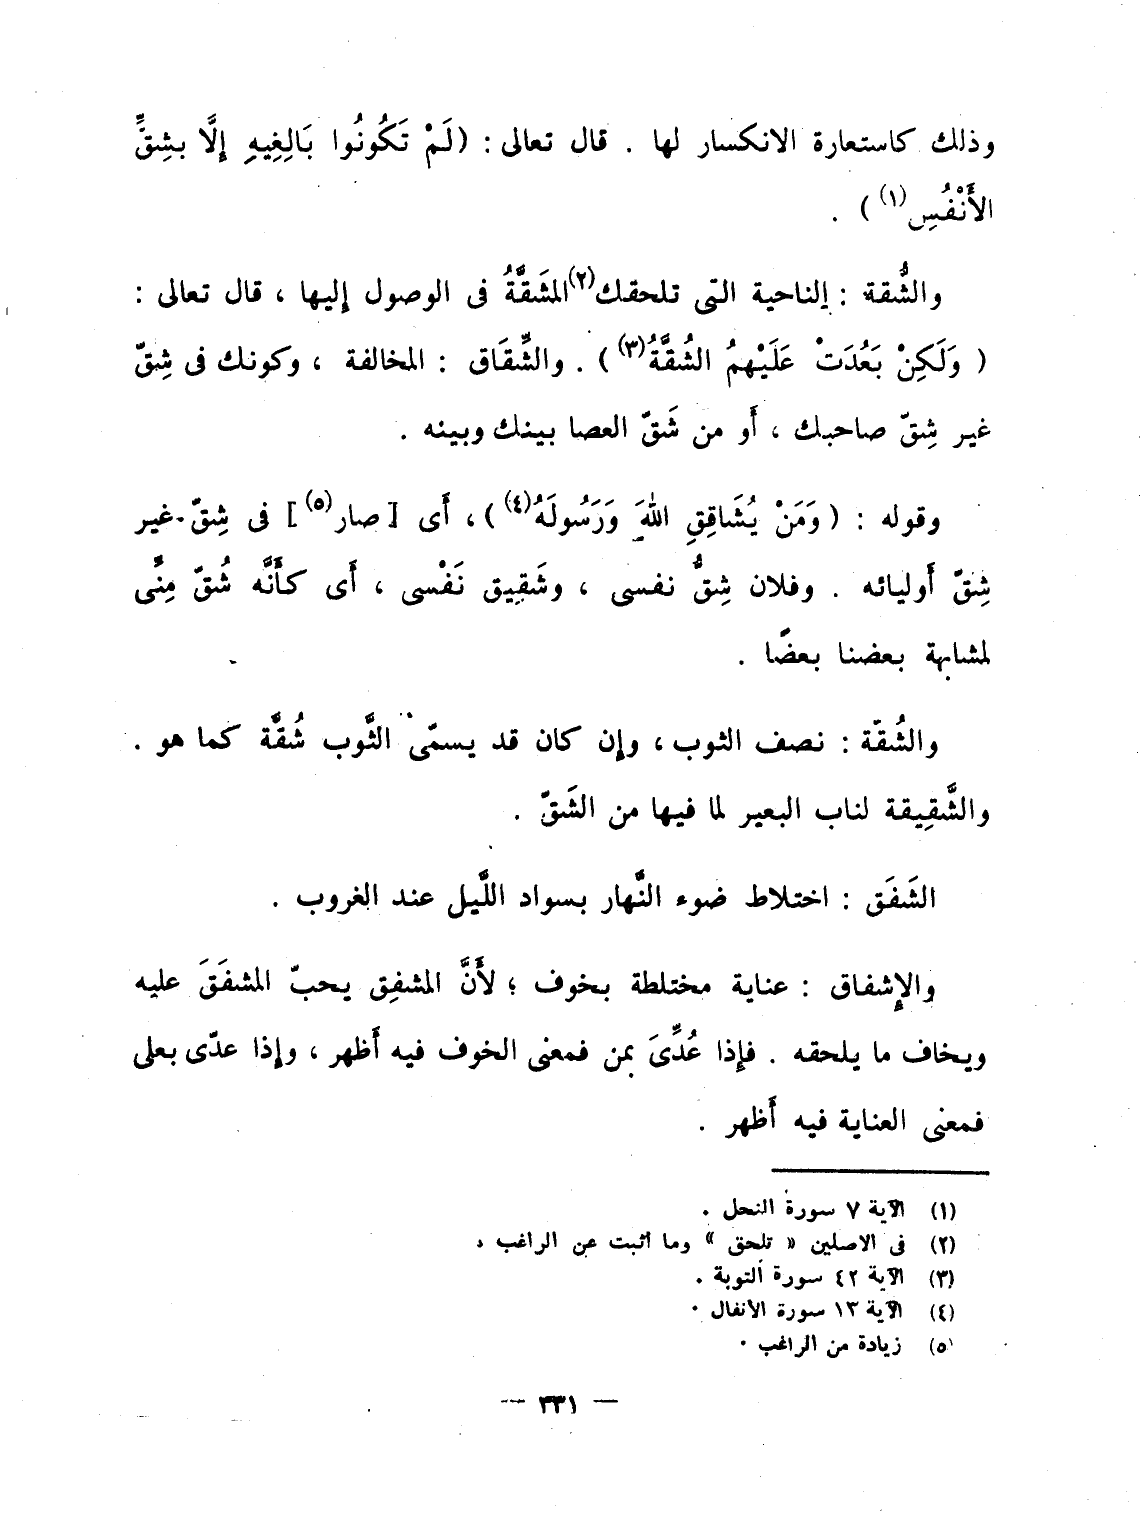 وذلك كاستعارة الانكسار لها . قال تعالى : (لَمْ تَكُونُوا بَالِغِيهِ إِلَّا بِشِقِّ
الأَنْفُسِ(١) ) .
والشُّقة : الناحية التى تلحقك(٢) المَشَقَّةُ فى الوصول إليها ، قال تعالى :
( وَلَكِنْ بَعُدَتْ عَلَيْهِمُ الشُقَّةُ(٣) ) . والشِّقَاق : المخالفة ، وكونك فى شِقّ
غير شِقّ صاحبك ، أَو من شَقّ العصا بينك وبينه .
وقوله : ( وَمَنْ يُشَاقِقِ اللهَ وَرَسُولَهُ(٤) ) ، أَى [ صار(٥) ] فى شِقّ غير
شِقّ أَوليائه . وفلان شِقُّ نفسى ، وشَقِيق نَفْسى ، أَى كأَنَّه شُقّ مِنِّى
لمشابهة بعضنا بعضًا .
والشُقّة : نصف الثوب ، وإن كان قد يسمّى الثَّوب شُقَّة كما هو .
والشَّقِيقة لناب البعير لما فيها من الشَقّ .
الشَفَق : اختلاط ضوء النَّهار بسواد اللَّيل عند الغروب .
والإِشفاق : عناية مختلطة بخوف ؛ لأَنَّ المشفِق يحبّ المشفَقَ عليه
ويخاف ما يلحقه . فإِذا عُدِّىَ بمن فمعنى الخوف فيه أَظهر ، وإذا عدّى بعلى
فمعنى العناية فيه أَظهر .
(١) الآية ٧ سورة النحل .
(٢) فى الاصلين « تلحق » وما أثبت عن الراغب .
(٣) الآية ٤٢ سورة التوبة .
(٤) الآية ١٣ سورة الأنفال .
(٥) زيادة من الراغب .
— ٣٣١ —